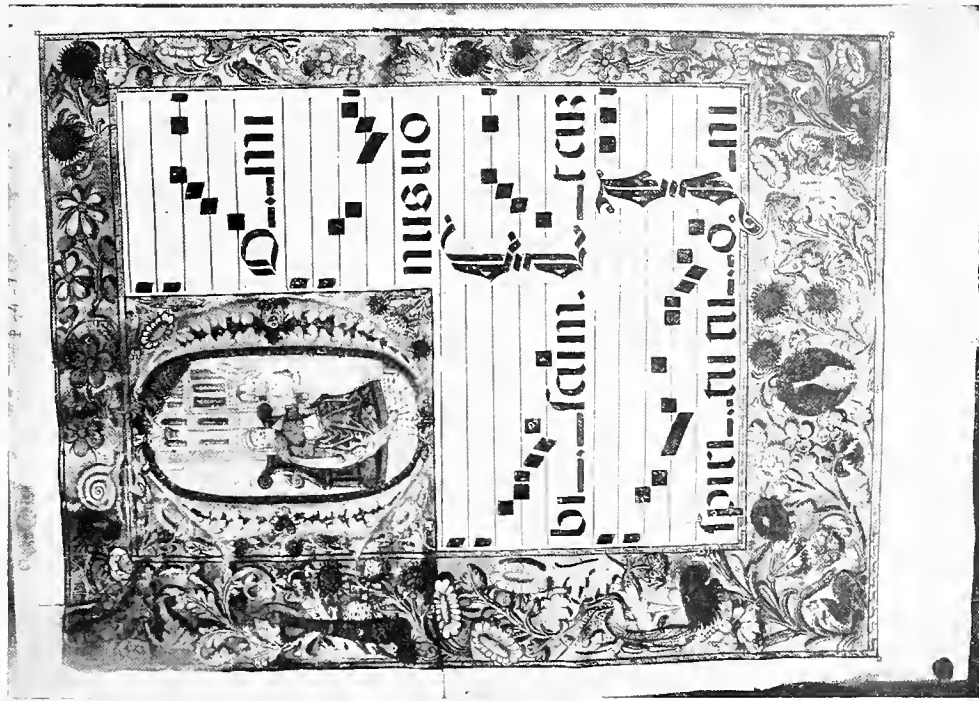 D__mi
nus uo
bi__scum. Et_cuz
spiri__tu tu__o. I_ni